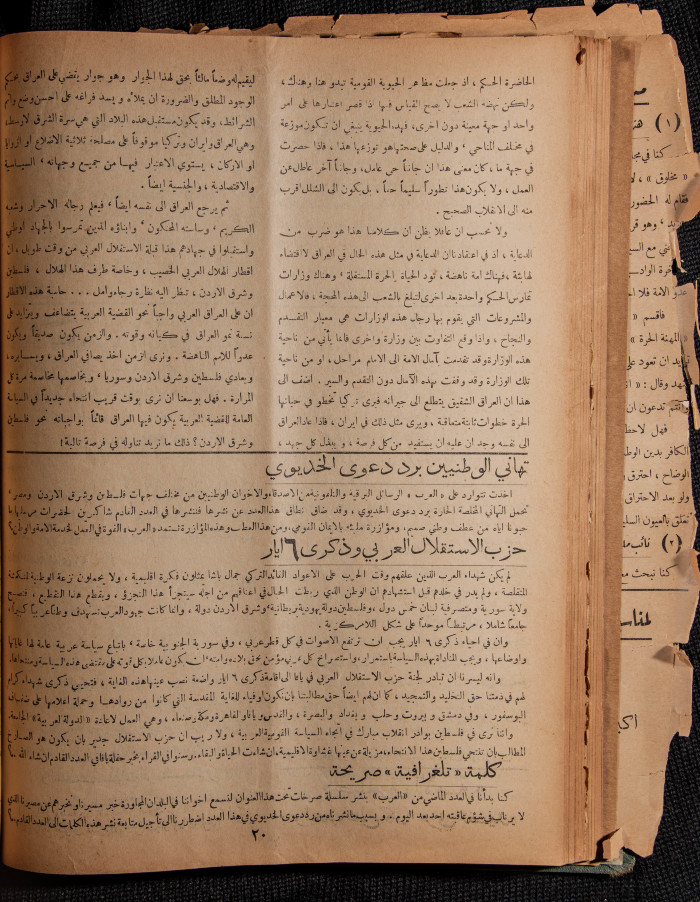 الحاضرة الحكم ، اذ جعلت مظاهر الحيوية القومية تبدو هنا وهناك ،
ولكن نهضة الشعب لا يصح القياس فيها اذا قصر اعتبارها على امر
واحد او جهة معينة دون اخرى، فهذه الحيوية ينبغي ان تكون موزعة
في مختلف المناحي ، والدليل على صحتها هو توزعها هذا ، فاذا حصرت
في جهة ما ، كان معنى هذا ان جانباً حي عامل، وجانباً آخر عاطل عن
العمل ، ولا يكون هذا تطوراً سليماً حياً ، بل يكون الى الشلل اقرب
منه الى الانقلاب الصحيح .
ولا نحسب ان عاقلا يظن ان كلامنا هذا هو ضرب من
الدعاية ، اذ في اعتقادنا ان الدعاية في مثل هذه الحال في العراق لا اقتضاء
لها بتة ، فهناك امة ناهضة ، تود الحياة الحرة المستقلة ، وهناك وزارات
تمارس الحكم واحدة بعد اخرى لتبلغ بالشعب الى هذه المحجة ، فالاعمال
والمشروعات التي يقوم بها رجال هذه الوزارات هي معيار التقدم
والنجاح ، واذا وقع التفاوت بين وزارة واخرى فانما يأتي من ناحية
هذه الوزارة وقد تقدمت آمال الامة الى الامام مراحل ، او من ناحية
تلك الوزارة وقد وقفت بهذه الآمال دون التقدم والسير . اضف الى
هذا ان العراق الشقيق يتطلع الى جيرانه فيرى تركيا تخطو في حياتها
الحرة خطوات ثابتة متعاقبة ، ويرى مثل ذلك في ايران ، فاذا عاد العراق
الى نفسه وجد ان عليه ان يستفيد من كل فرصة ، ويبذل كل جهد ،
ليقيم له وضعاً مالئاً بحق لهذا الجوار وهو جوار يقضي على العراق بحكم
الوجود المطلق والضرورة ان يملأه ويسد فراغه على احسن وضع واتم
الشرائط، وقد يكون مستقبل هذه البلاد التي هي سرة الشرق الاوسط،
وهي العراق وايران وتركيا موقوفاً على مصلحة ثلاثية الاضلاع او الزوايا
او الاركان ، يستوي الاعتبار فيها من جميع وجهاته ، السياسية
والاقتصادية ، والجنسية ايضاً .
ثم يرجع العراق الى نفسه ايضاً ، فيعلم رجاله الاحرار وشعبه
الكريم ، وساسته المحنكون ، وابناؤه الذين تمرسوا بالجهاد الوطني
واستقبلوا في جهادهم هذا قبلة الاستقلال العربي من وقت طويل ، ان
اقطار الهلال العربي الخصيب ، وخاصة طرف هذا الهلال ، فلسطين
وشرق الاردن ، تنظر اليه نظرة رجاء وأمل . . . حاسبة هذه الاقطار
ان على العراق العربي واجباً نحو القضية العربية يتضاعف ويتزايد على
نسبة نمو العراق في كيانه وقوته . والزمن يكون صديقاً ويكون
عدواً للامم الناهضة . ونرى الزمن اخذ يصافي العراق ، ويسايره ،
ويعادي فلسطين وشرق الاردن وسوريا ، ويخاصمها مخاصمة مرة كل
المرارة . فهل بوسعنا ان نرى بوقت قريب اتجاهاً جديداً في السياسة
العامة للقضية العربية يكون فيها العراق قائماً بواجباته نحو فلسطين
وشرق الاردن؟ ذلك ما نريد تناوله في فرصة تالية !
تهاني الوطنيين برد دعوى الخديوي
اخذت تتوارد على « العرب » الرسائل البرقية والتلفونية من الاصدقاء والاخوان الوطنيين من مختلف جهات فلسطين وشرق الاردن ومصر ،
تحمل التهاني المخلصة الحارة برد دعوى الخديوي ، وقد ضاق نطاق هذا العدد عن نشرها فننشرها في العدد القادم شاكرين لحضرات مرسليها ما
حبونا اياه من عطف وطني صميم ، ومؤازرة مليئة بالايمان القومي، ومن هذا العطف وهذه المؤازرة تستمد «العرب» القوة في العمل لخدمة الامة والوطن؟
حزب الاستقلال العربي وذكرى ٦ ايار
لم يكن شهداء العرب الذين علقهم وقت الحرب على الاعواد القائد التركي جمال باشا يمثلون فكرة اقليمية ، ولا يحملون نزعة الوطنية المنكمشة
المتقلصة ، ولم يدر في خلدم قبل استشهادهم ان الوطن الذي ربطت الحبال في اعناقهم من اجله سيتجزأ هذا التجزؤ ، ويقطع هذا التقطيع ، فتصبح
ولاية سورية ومتصرفية لبنان خمس دول ، وفلسطين دولة يهودية بريطانية ، وشرق الاردن دولة ، وانما كانت جهود العرب تستهدف وطناً عربياً كبيراً،
جامعاً شاملا ، مرتبطاً موحداً على شكل اللامركزية .
وان في احياء ذكرى ٦ ايار يجب ان ترتفع الاصوات في كل قطر عربي ، وفي سورية الجنوبية خاصة ، باتباع سياسة عربية عامة لها غاياتها
واوضاعها ، ويجب المناداة بهذه السياسة باستمرار ، واستصراخ كل عربي مؤمن بحق بلاده وامته ، ان يكون عاملا بكل قوته على مقتضى هذه السياسة ومنحاها.
وانه ليسرنا ان تبادر لجنة حزب الاستقلال العربي في يافا الى اقامة ذكرى ٦ ايار واضعة نصب عينيها هذه الغاية ، فتحيي ذكرى شهداء كرام
لهم في ذمتنا حق التخليد والتمجيد ، كما ان لهم ايضاً حق مطالبتنا بان نكون اوفياء للغاية المقدسة التي كانوا من روادها وحملة اعلامها على ضفاف
البوسفور ، وفي دمشق و بيروت وحلب و بغداد والبصرة ، والقدس ويافا والقاهرة ومكة وصنعاء ، وهي العمل لاعادة «الدولة العربية» الجامعة.
واننا نرى في فلسطين بوادر انقلاب مبارك في اتجاه السياسة القومية العربية ، ولا ريب ان حزب الاستقلال جدير بان يكون هو الصارخ
المطالب بان تنتحي فلسطين هذا الانتحاء، مزيلة عن عينها غشاوة الاقليمية، ان شاءت الحياة والبقاء. وسنوافي القراء بخبر حفلة يافا في العدد القادم ان شاء الله .؟
كلمة « تلغرافية » صريحة
كنا بدأنا في العدد الماضي من «العرب» بنشر سلسلة صرخات تحت هذا العنوان لنسمع اخواننا في البلدان المجاورة خبر مسيرنا ونخبرهم عن مصيرنا الذي
لا يرتاب في شؤم عاقبته احد بعد اليوم . وبسبب ما نشرناه من رد دعوى الخديوي في هذا العدد اضطررنا الى تأجيل متابعة نشر هذه الكلمات الى العدد القادم .؟
٢٠
(١)
كنا في
« مخلوق » ،
فقام له الحضور
(٢) نائب
كنا نبحث